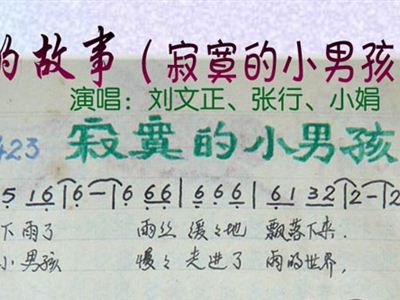 的故事（寂寞的小男孩
演唱：刘文正、张行、小娟
423 寂寞的小男孩
5 16 | 6 - | 6 66 | 6 66 | 61 32 | 2 - 2
下雨了 雨丝 缓々地 飘落下来.
小男孩 慢々 走进了 雨的世界,